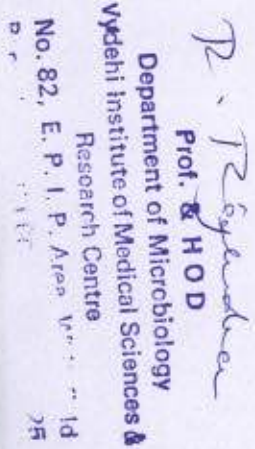 R.
Prof. & H O D
Department of Microbiology
Vydehi Institute of Medical Sciences &
Research Centre
No. 82, E. P. I. P. Area